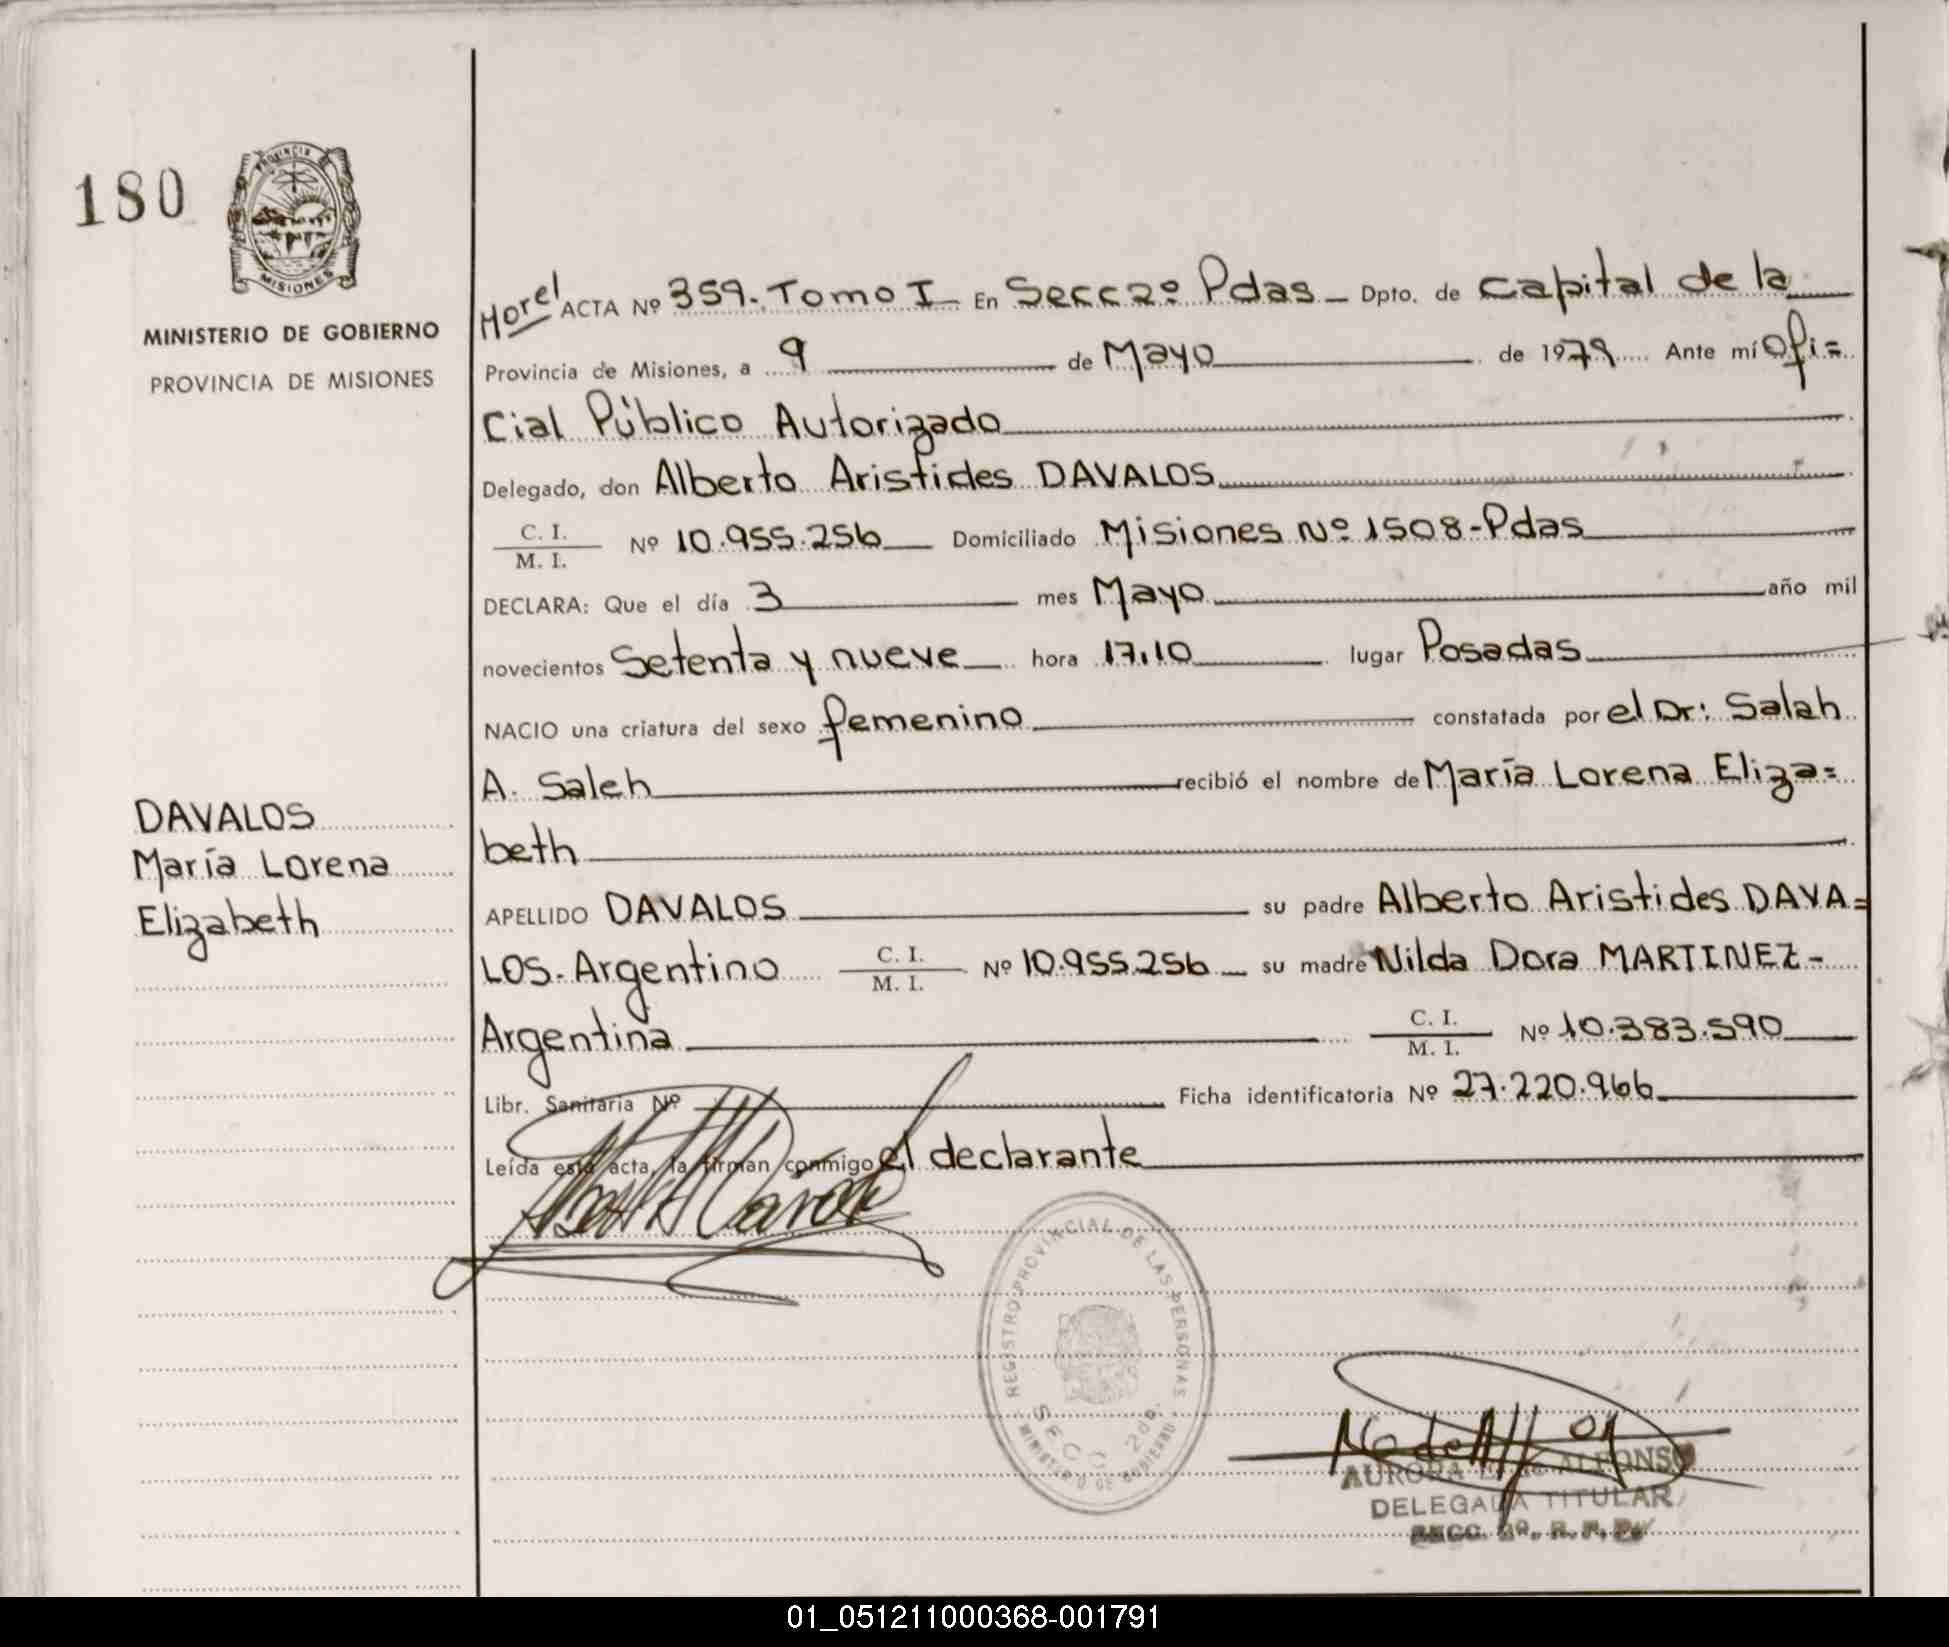 180
PROVINCIA DE
MISIONES
MINISTERIO DE GOBIERNO
PROVINCIA DE MISIONES
ACTA Nº 359. Tomo I En Secc 2º Pdas Dpto. de Capital de la
Provincia de Misiones, a 9 de Mayo de 1979 Ante mí Ofi=
cial Público Autorizado
Delegado, don Alberto Aristides DAVALOS
C. I.
M. I. Nº 10.955.256 Domiciliado Misiones Nº 1508-Pdas
DECLARA: Que el día 3 mes Mayo año mil
novecientos Setenta y nueve hora 17.10 lugar Posadas
NACIO una criatura del sexo femenino constatada por el Dr: Salah
A. Saleh recibió el nombre de María Lorena Eliza=
beth
APELLIDO DAVALOS su padre Alberto Aristides DAVA=
LOS. Argentino C. I.
M. I. Nº 10.955.256 su madre Nilda Dora MARTINEZ-
Argentina C. I.
M. I. Nº 10.383.590
Libr. Sanitaria Nº Ficha identificatoria Nº 27.220.966
Leída esta acta, la firman conmigo el declarante
DAVALOS
María Lorena
Elizabeth
REGISTRO PROVINCIAL DE LAS PERSONAS
SECC 2da.
MINISTERIO DE GOBIERNO
AURORA ALFONSO
DELEGADA TITULAR
SECC. 2º. R. P. P.
01_051211000368-001791